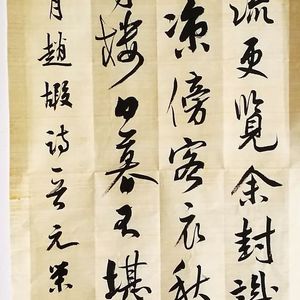 流更覽余封識
凉傍客衣秋
樓日暮不堪
月趙嘏詩元榮